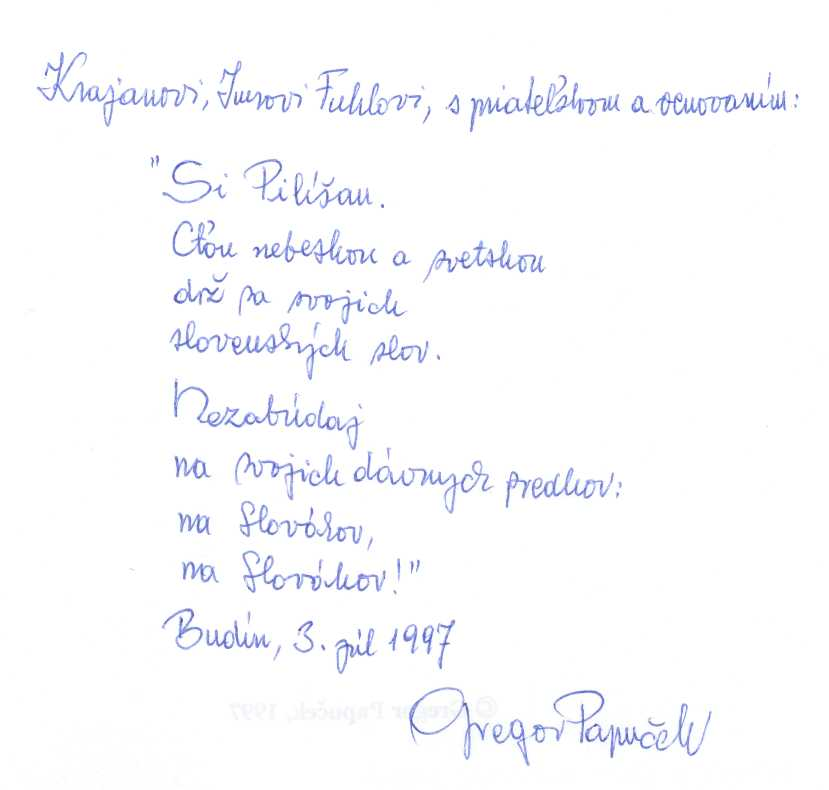 Krajanovi, Imrovi Fuhlovi, s priateľstvom a venovaním:
"Si Pilíšan.
Cťou nebeskou a svetskou
drž sa svojich
slovenských slov.
Nezabúdaj
na svojich dávnych predkov:
na Slovákov,
na Slovákov!"
Budín, 3. júl 1997
Gregor Papuček
© Gregor Papuček, 1997